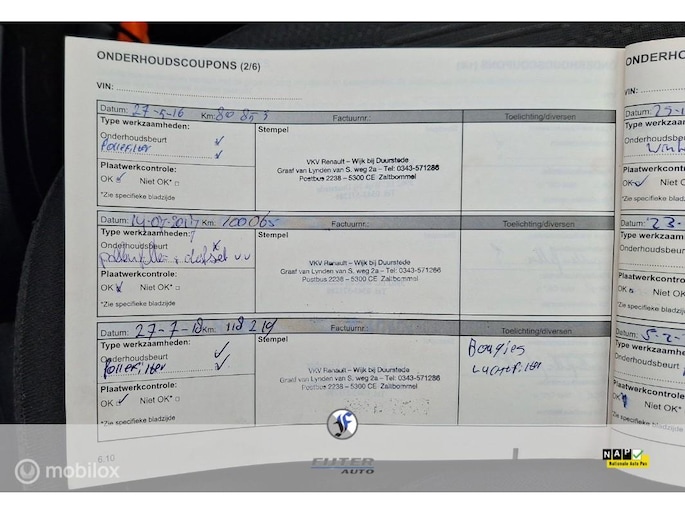 ONDERHOUDSCOUPONS (2/6)
VIN:
Datum: 27-5-16 Km: 80 853 Factuurnr.: Toelichting/diversen
Type werkzaamheden: Stempel
Onderhoudsbeurt ✓
Pollefilter ✓
VKV Renault – Wijk bij Duurstede
Graaf van Lynden van S. weg 2a – Tel: 0343-571286
Postbus 2238 – 5300 CE Zaltbommel
Plaatwerkcontrole:
OK ✓ Niet OK* □
*Zie specifieke bladzijde
Datum: 14-07-2017 Km: 100065 Factuurnr.: Toelichting/diversen
Type werkzaamheden: Stempel
Onderhoudsbeurt x
pollenfilter
VKV Renault – Wijk bij Duurstede
Graaf van Lynden van S. weg 2a – Tel: 0343-571286
Postbus 2238 – 5300 CE Zaltbommel
Plaatwerkcontrole:
OK Niet OK* □
*Zie specifieke bladzijde
Datum: 27-7-18 Km: 118 219 Factuurnr.: Toelichting/diversen
Type werkzaamheden: Stempel
Onderhoudsbeurt ✓
Pollefilter ✓
Bougies
Luchtfilter
VKV Renault – Wijk bij Duurstede
Graaf van Lynden van S. weg 2a – Tel: 0343-571286
Postbus 2238 – 5300 CE Zaltbommel
Plaatwerkcontrole:
OK ✓ Niet OK* □
*Zie specifieke bladzijde
6.10
ONDERHO
VIN:
Datum: 25-1
Type werkzaamhe
Onderhoudsbeurt
Plaatwerkcontro
OK ✓ Niet O
*Zie specifieke bladz
Datum: 23-
Type werkzaamh
Onderhoudsbeur
Plaatwerkcontro
OK Niet O
*Zie specifieke bla
Datum: 5-2-
Type werkzaam
Onderhoudsbeu
Plaatwerkcontrol
OK Niet OK
*Zie specifieke bladz
mobilox
F
FIJTER
AUTO
NAP
Nationale Auto Pas